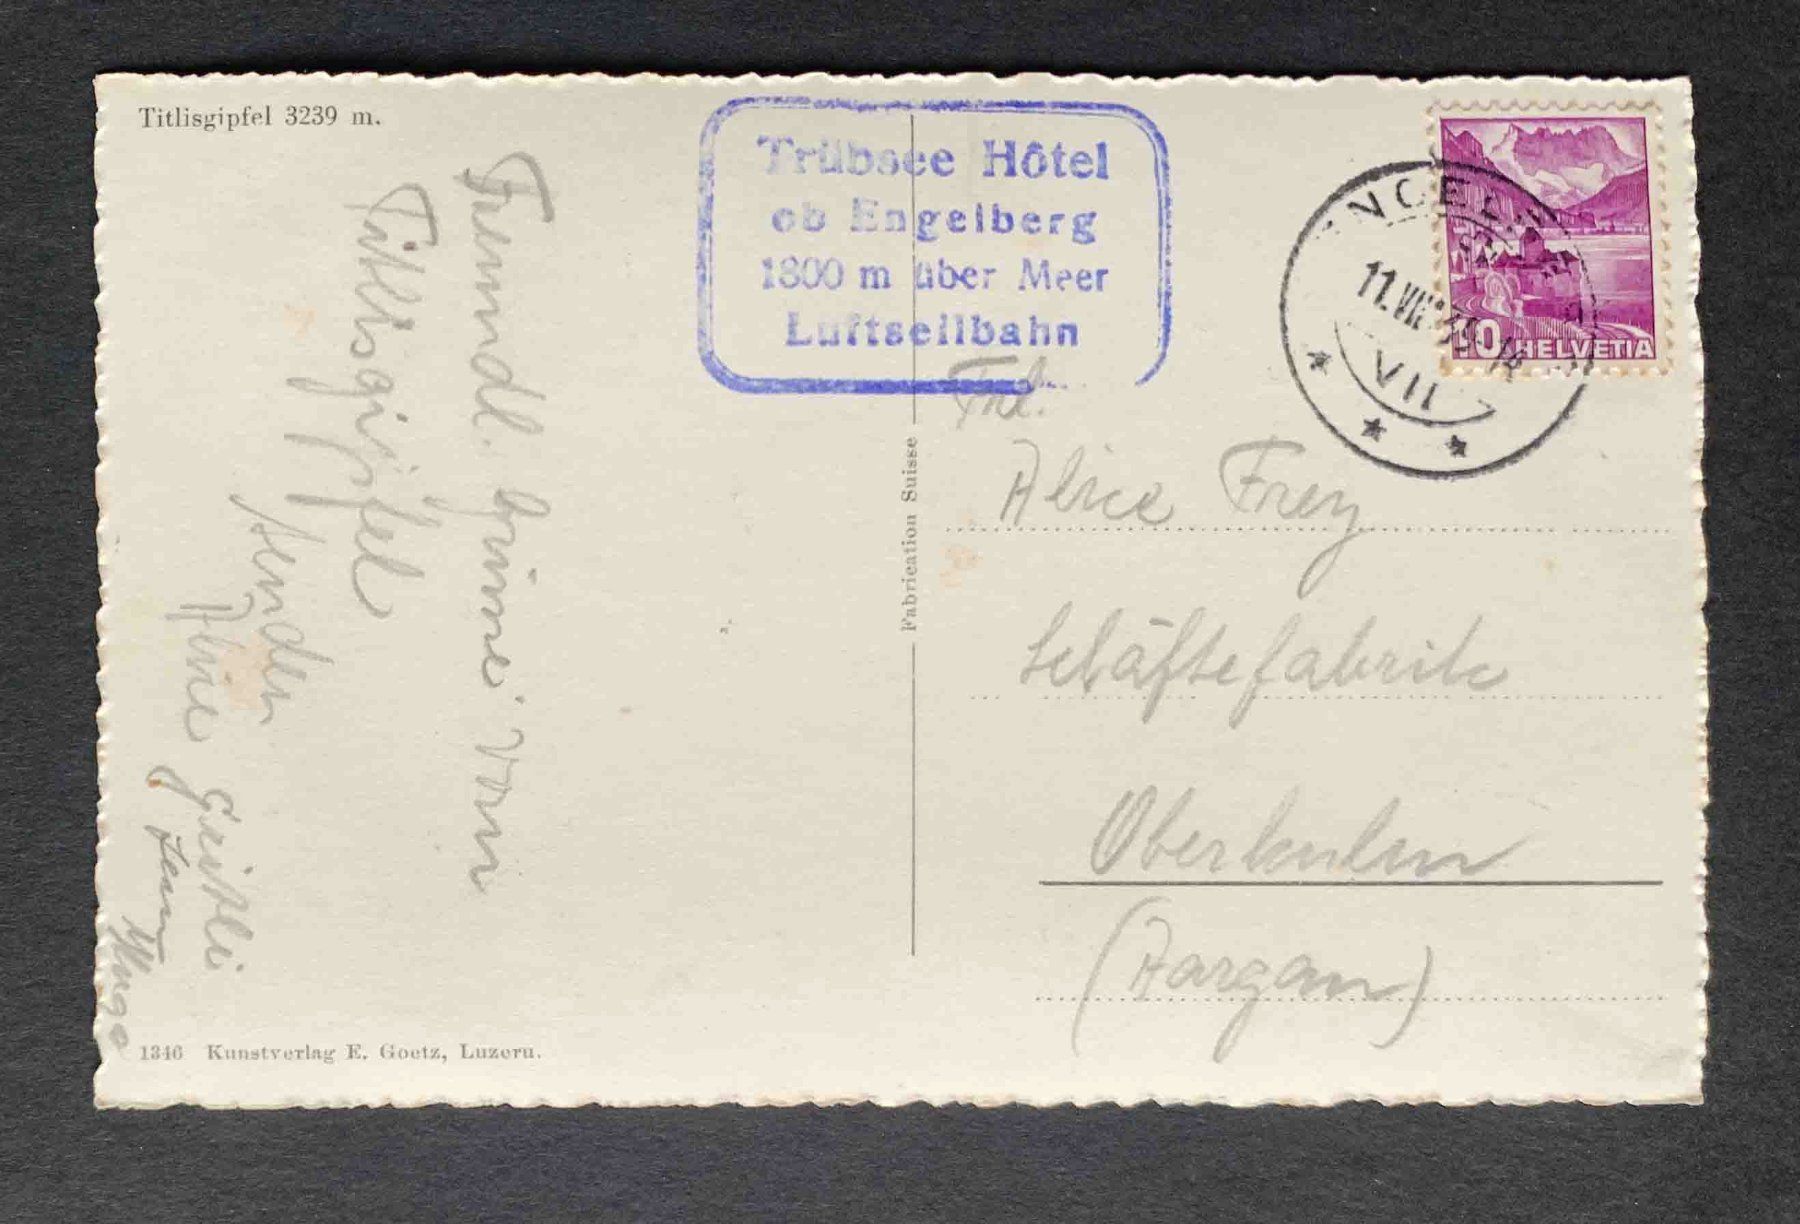 Titlisgipfel 3239 m.
Trübsee Hôtel
ob Engelberg
1800 m über Meer
Luftseilbahn
ENGELBERG
11.VIII.39
VII
10 HELVETIA
Freundl. Grüsse vom
Titlisgipfel
senden
Alice Gritli
Hugo
Fabrication Suisse
Frl.
Alice Frey
Schäftefabrik
Oberkulm
(Aargau)
1346 Kunstverlag E. Goetz, Luzern.